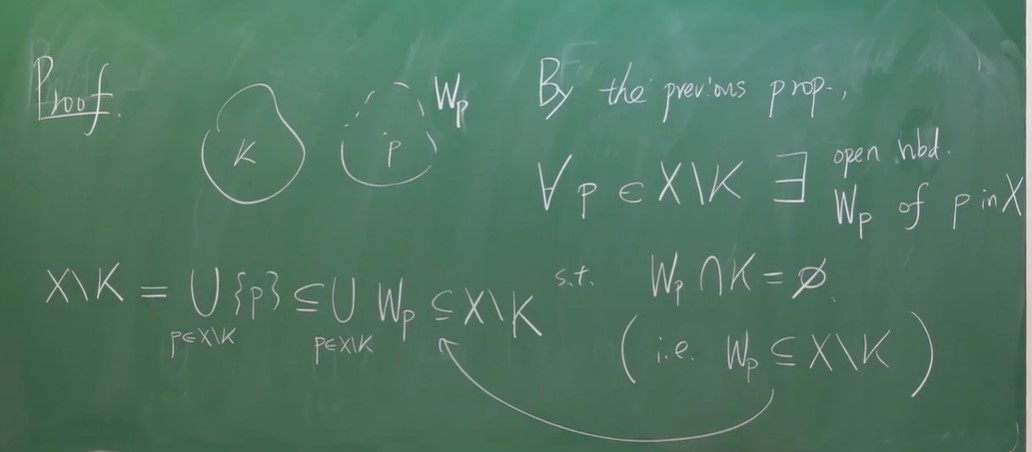 Proof.
K
p
W_p
By the previous prop.,
∀ p ∈ X\K ∃ open nbd. W_p of p in X
s.t. W_p ∩ K = ∅.
(i.e. W_p ⊆ X\K)
X\K = ∪_{p∈X\K} {p} ⊆ ∪_{p∈X\K} W_p ⊆ X\K